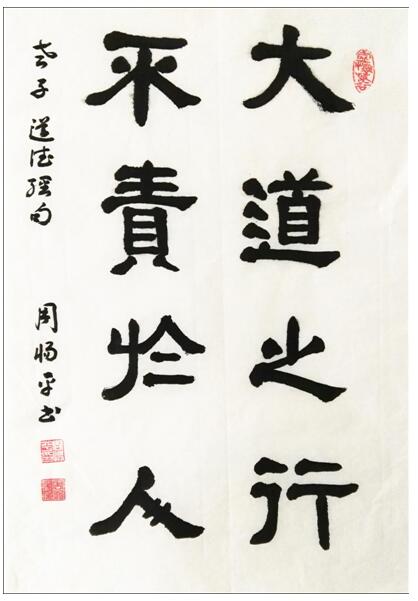 大道之行
不責於人
老子道德經句
周畅平书